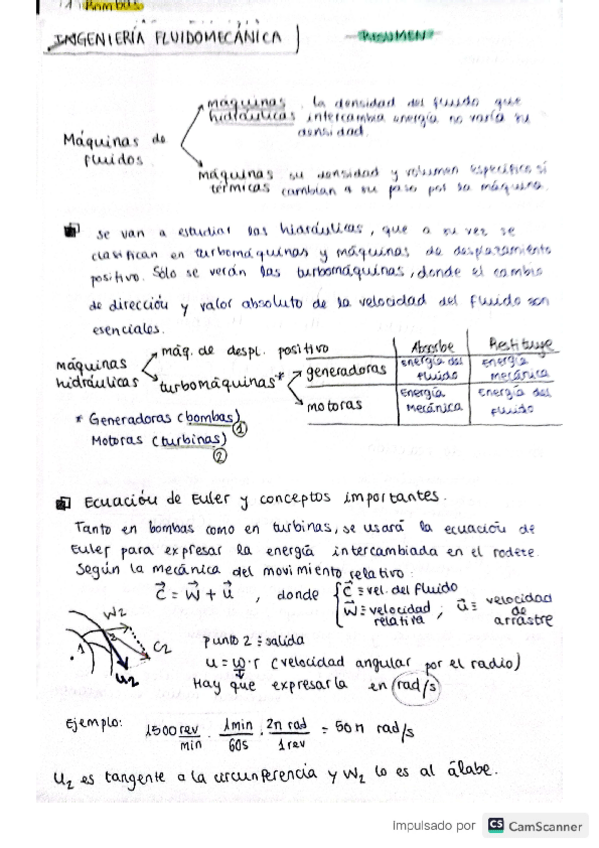 1. Bombas
INGENIERÍA FLUIDOMECÁNICA
RESUMEN
Máquinas de fluidos
máquinas hidráulicas la densidad del fluido que
intercambia energía no varía su
densidad.
máquinas térmicas su densidad y volumen específico sí
cambian a su paso por la máquina.
Se van a estudiar las hidráulicas, que a su vez se
clasifican en turbomáquinas y máquinas de desplazamiento
positivo. Sólo se verán las turbomáquinas, donde el cambio
de dirección y valor absoluto de la velocidad del fluido son
esenciales.
máquinas hidráulicas
máq. de despl. positivo
turbomáquinas*
Absorbe Restituye
generadoras energía del fluido energía mecánica
motoras energía mecánica energía del fluido
* Generadoras (bombas) ①
Motoras (turbinas) ②
Ecuación de Euler y conceptos importantes.
Tanto en bombas como en turbinas, se usará la ecuación de
Euler para expresar la energía intercambiada en el rodete.
Según la mecánica del movimiento relativo:
c = w + u , donde { c ≡ vel. del fluido
w ≡ velocidad relativa ; u ≡ velocidad de arrastre
w2
2
1
c2
u2
punto 2 ≡ salida
u = w·r (velocidad angular por el radio)
Hay que expresarla en rad/s
Ejemplo: 1500 rev/min · 1min/60s · 2π rad/1 rev = 50π rad/s
u2 es tangente a la circunferencia y w2 lo es al álabe.
Impulsado por CS CamScanner